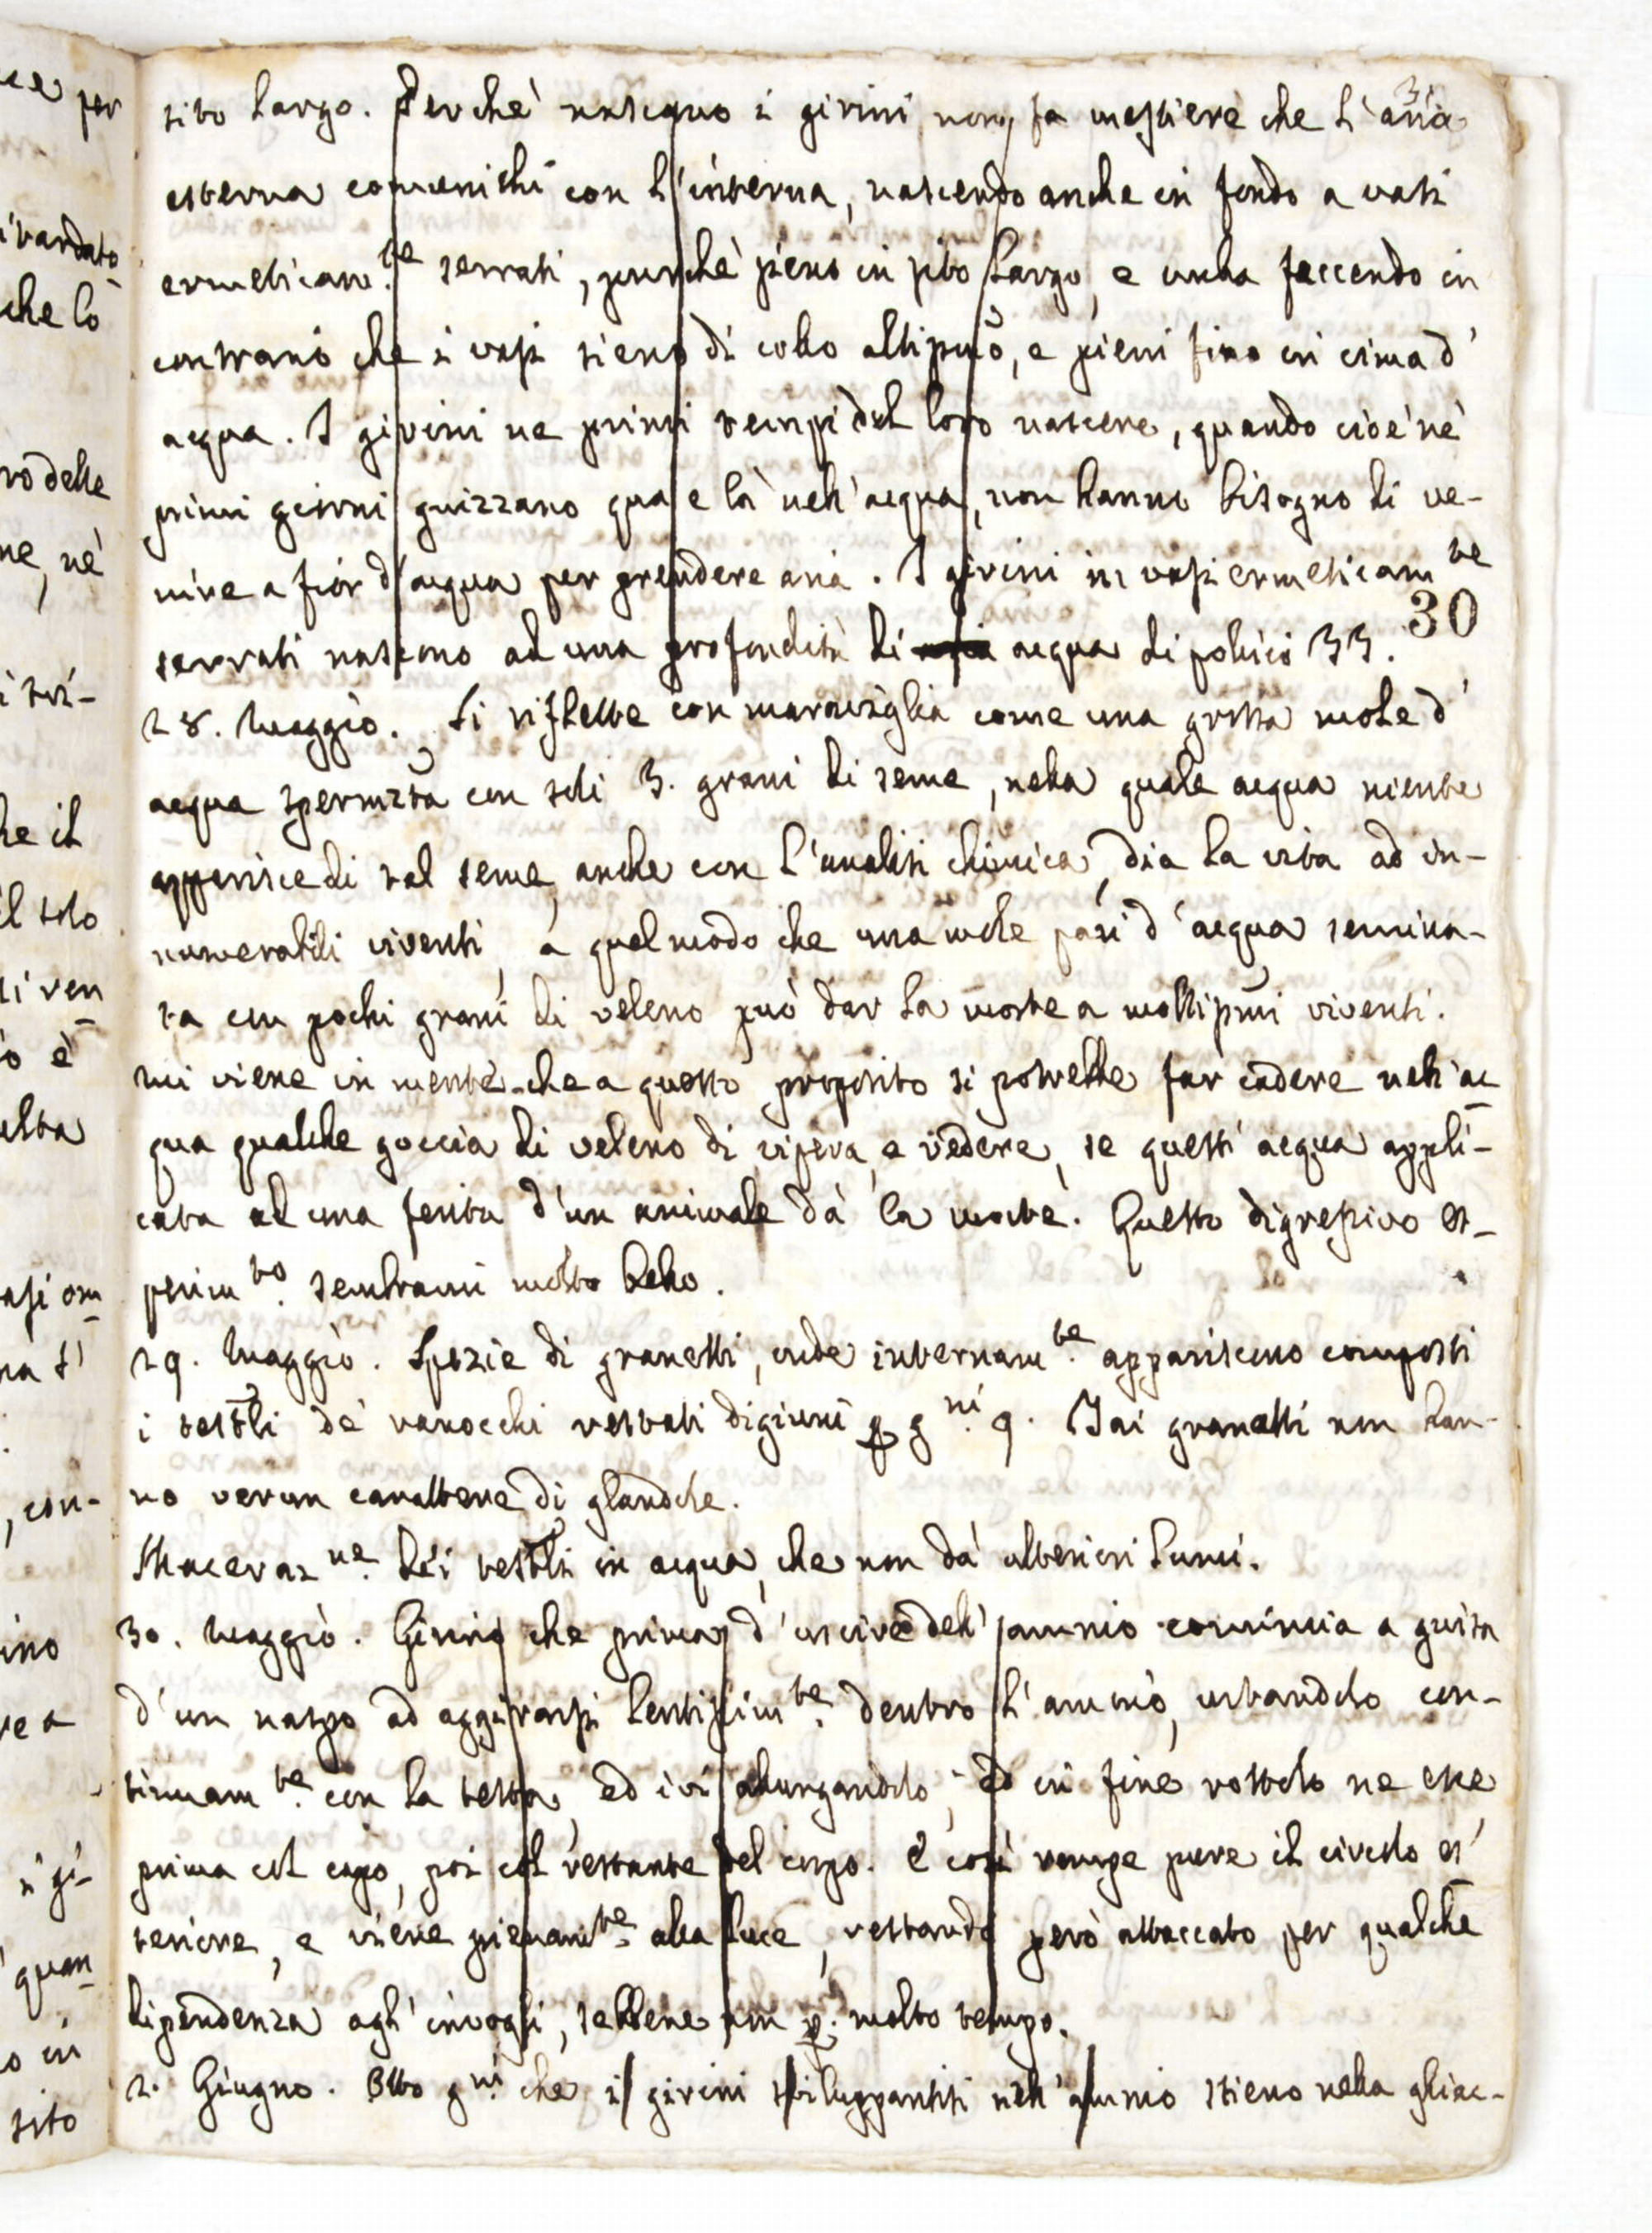 sito largo. Perchè nascano i girini non fa mestiere che l'aria
esterna comunichi con l'interna, nascendo anche in fondo a vasi
ermeticam.te serrati, purchè sieno in sito largo, e nulla faccendo in
contrario che i vasi sieno di collo altissimo, e pieni fino in cima d'
acqua. I girini ne primi tempi del loro nascere, quando cioè nè
primi giorni guizzano qua e là nell'acqua, non hanno bisogno di ve-
nire a fior d'acqua per prendere aria. I girini in vasi ermeticam te
serrati nascono ad una profondità di acqua di pollici 33.
30
28. Maggio. Si riflette con maraviglia come una grossa mole d'
acqua spermata con soli 3. grani di seme, nella quale acqua niente
apparisce di tal seme, anche con l'analisi chimica, dia la vita ad in-
numerabili viventi, a quel modo che una mole pari d'acqua semina-
ta con pochi grani di veleno può dar la morte a moltipmi viventi.
Mi viene in mente che a questo proposito si potrebbe far cadere nell'ac
qua qualche goccia di veleno di vipera, e vedere, se quest' acqua appli-
cata ad una ferita d'un animale dà la morte. Questo digressivo es-
perim to. sembrami molto bello.
29. Maggio. Spezie di granetti, onde internam te. appariscono composti
i testoli de' ranocchi restati digiuni p g ni. 9. Tai granetti non han-
no verun carattere di glandole.
Maceraz ne. dei testoli in acqua, che non dà ulteriori lumi.
30. Maggio. Girino che prima d'uscire dell' amnio comincia a guisa
d'un naspo ad aggirarsi lentissim te. dentro l'amnio, urtandolo con-
tinuam te. con la testa, ed ivi allungandolo, ed in fine rottolo ne esce
prima col capo, poi col restante del corpo. E così rompe pure il circolo es'
teriore, e viene pienam te. alla luce, restando però attaccato per qualche
dipendenza agl' invogli, sebbene non p. molto tempo.
2. Giugno. Otto g ni. che i girini sviluppantisi nell'amnio stieno nella ghiac-